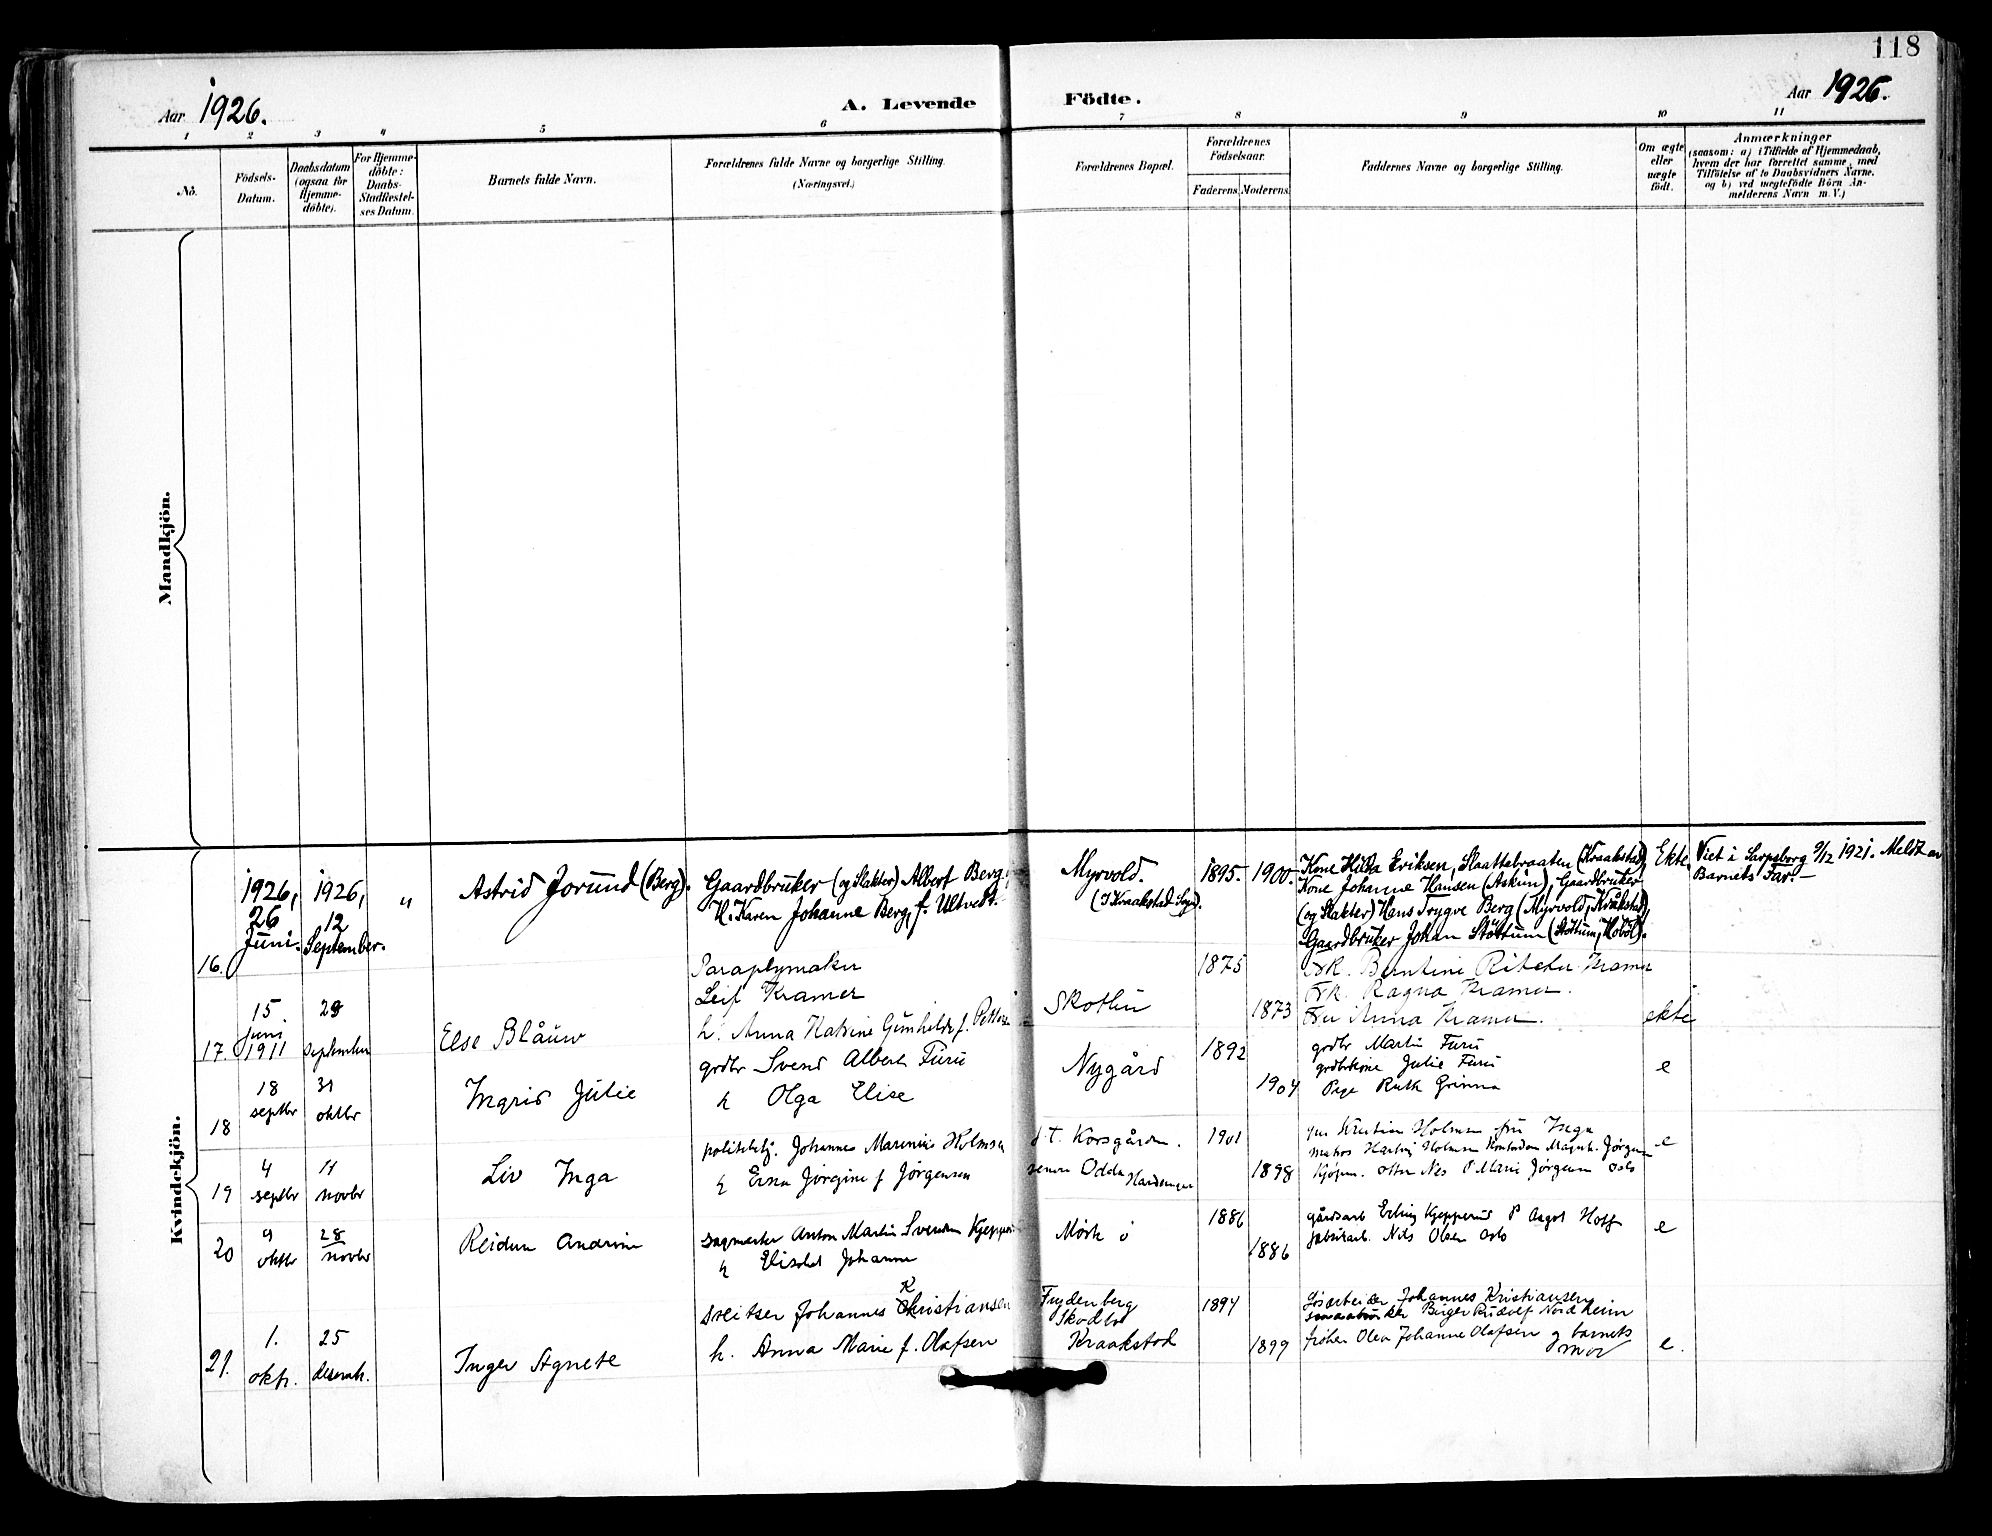 118
Aar 1926.
A. Levende Födte.
Aar 1926.
1 2 3 4 5 6 7 8 9 10 11
No.
Födsels-Datum.
Daabsdatum (ogsaa for Hjemme-döbte).
For Hjemme-döbte: Daabs-Stadfæstel-ses Datum.
Barnets fulde Navn.
Forældrenes fulde Navne og borgerlige Stilling.
(Næringsvei.)
Forældrenes Bopæl.
Forældrenes Födselsaar.
Faderens. Moderens.
Faddernes Navne og borgerlige Stilling.
Om ægte eller uægte födt.
Anmærkninger
(saasom: a) i Tilfælde af Hjemmedaab,
hvem der har forrettet samme, med
Tilföielse af to Daabsvidners Navne.
og b) ved uægtefödte Börn An-
melderens Navn m. V.)
Mandkjön.
Kvindekjön.
16. 1926, 26 Juni. 1926, 12 September. „ Astrid Jorund (Berg).
Gaardbruker (og Slakter) Albert Berg,
H. Karen Johanne Berg, f. Ultvedt.
Myrvold. (I Kraakstad Sogn). 1895. 1900.
Kone Hilda Eriksen, Slaattebraaten (Kraakstad),
Kone Johanne Hansen (Askim), Gaardbruker
(og Slakter) Hans Trygve Berg (Myrvold, Kråkstad),
Gaardbruker Johan Støttum (Støttum, Hobøl).
Ekte.
Viet i Sarpsborg 9/12 1921. Meldt av
Barnets Far.—
17. 15 Juni 1911 29 september Else Blåuw
Paraplymaker
Leif Kramer
h. Anna Katrine Gunhilde f.
Skotbu 1875 1873
Frk. Berntine Kramer
Frk. Ragna Kramer.
Fru Anna Kramer.
ekte
18 18 septbr 31 oktbr Ingrid Julie
grdbr Svend Albert Furu
h Olga Elise
Nygård 1892 1904
grdbr Martin Furu
grdbrkone Julie Furu
Pige Ruth Grinna
e
19 4 septbr 11 novbr Liv Inga
politibtj. Johannes Marenius Holmsen
h Erna Jørgine f Jørgensen
f.t. Korsgården.
senere Odda Hardanger
1901 1898
Kristian Holmsen fru Inga
matros Hartvig Holmsen Jørgensen
Kjøpm. Otto Nes P Marie Jørgensen Oslo
e
20 9 oktbr 28 novbr Reidun Andrine
sagmester Anton Martin Svendsen Kjepperud
h Elisabet Johanne
Mørk ö 1886 1886
gårdsarb Erling Kjepperud P Aagot Hoff
fabrikarb. Nils Olsen Oslo
e
21. 1. oktr. 25 desembr. Inger Agnete
sveitser Johannes Kristiansen
h. Anna Marie f. Olafsen
Frydenberg
Skodbo
Kraakstad
1894 1899
Løsarbeider Johannes Kristiansen
smaabruker Birger Rudolf Nordheim
frøken Olea Johanne Olafsen og barnets
mor
e.